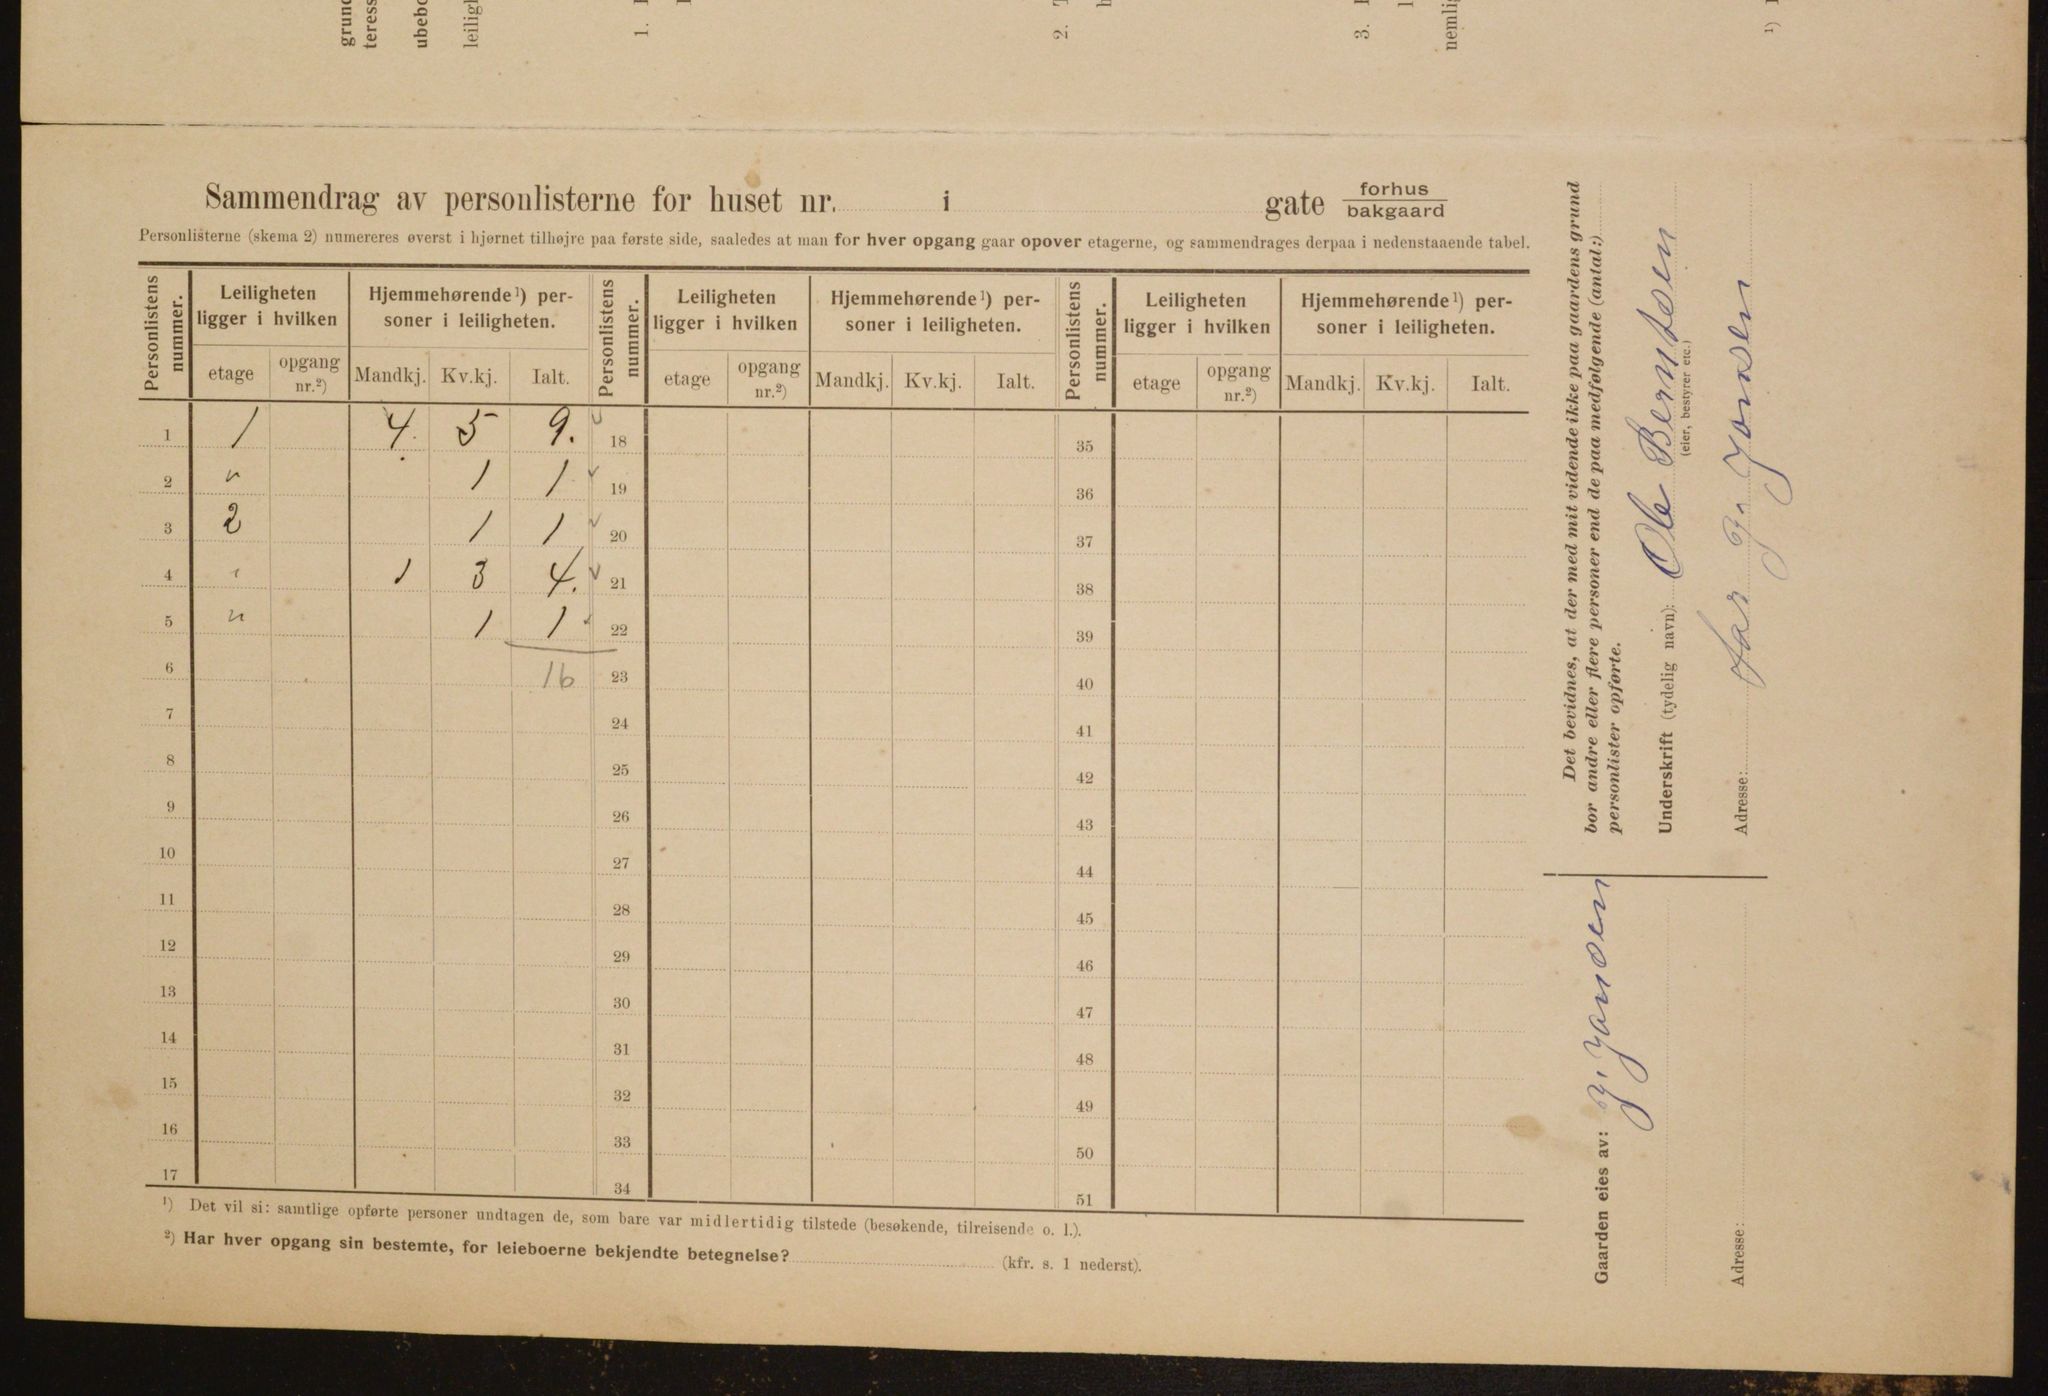 grund
teress
ubebo
leiligh
1.
2.
3.
nemlig
1)
Sammendrag av personlisterne for huset nr. i gate forhus
bakgaard
Personlisterne (skema 2) numereres øverst i hjørnet tilhøjre paa første side, saaledes at man for hver opgang gaar opover etagerne, og sammendrages derpaa i nedenstaaende tabel.
Personlistens nummer. Leiligheten ligger i hvilken Hjemmehørende 1) personer i leiligheten. Personlistens nummer. Leiligheten ligger i hvilken Hjemmehørende 1) personer i leiligheten. Personlistens nummer. Leiligheten ligger i hvilken Hjemmehørende 1) personer i leiligheten.
etage opgang nr.2) Mandkj. Kv.kj. Ialt. etage opgang nr.2) Mandkj. Kv.kj. Ialt. etage opgang nr.2) Mandkj. Kv.kj. Ialt.
1 1 4. 5 9. 18 35
2 " 1 1 19 36
3 2 1 1 20 37
4 " 1 3 4. 21 38
5 " 1 1 22 39
6 16 23 40
7 24 41
8 25 42
9 26 43
10 27 44
11 28 45
12 29 46
13 30 47
14 31 48
15 32 49
16 33 50
17 34 51
1) Det vil si: samtlige opførte personer undtagen de, som bare var midlertidig tilstede (besøkende, tilreisende o. l.).
2) Har hver opgang sin bestemte, for leieboerne bekjendte betegnelse? (kfr. s. 1 nederst).
Det bevidnes, at der med mit vidende ikke paa gaardens grund
bor andre eller flere personer end de paa medfølgende (antal:)
personlister opførte.
Underskrift (tydelig navn): Ole Berntsen
(eier, bestyrer etc.)
Adresse: for J. Jansen
Gaarden eies av: J. Jansen
Adresse: